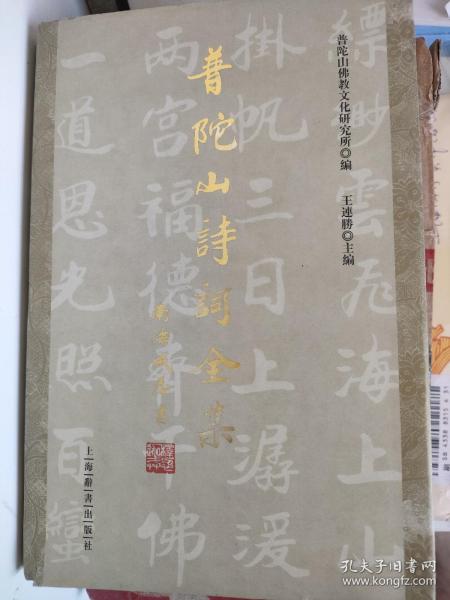 普陀山佛教文化研究所◎编
王連勝◎主编
普陀山詩詞全集
上海辭書出版社
縹緲雲飛海上山
掛帆三日上潺湲
两宫福德齊千佛
一道恩光照百蠻
孔夫子旧书网
www.kongfz.com